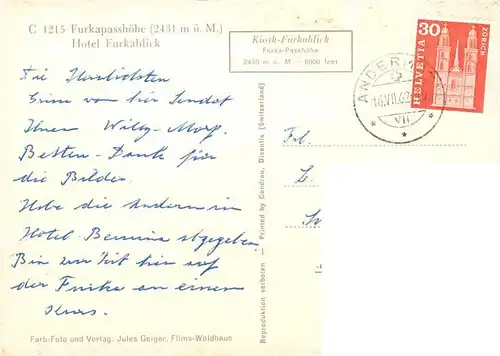 C 1215 Furkapasshöhe (2431 m ü. M.)
Hotel Furkablick
Kiosk-Furkablick
Furka-Passhöhe
2436 m u. M - 8000 feet
30
HELVETIA
ZÜRICH
ANDERM
16.VII.62
VII
Die Herzlichsten
Grüsse von hier sendet
Ihnen Willy
Besten Dank für
die Bilder.
Habe die andern im
Hotel Bernina abgegeben
Bin zur Zeit hier auf
der Furka an einem
Kurs.
Frl.
Reproduktion verboten — Printed by Condrau, Disentis (Switzerland)
Farb-Foto und Verlag: Jules Geiger, Flims-Waldhaus